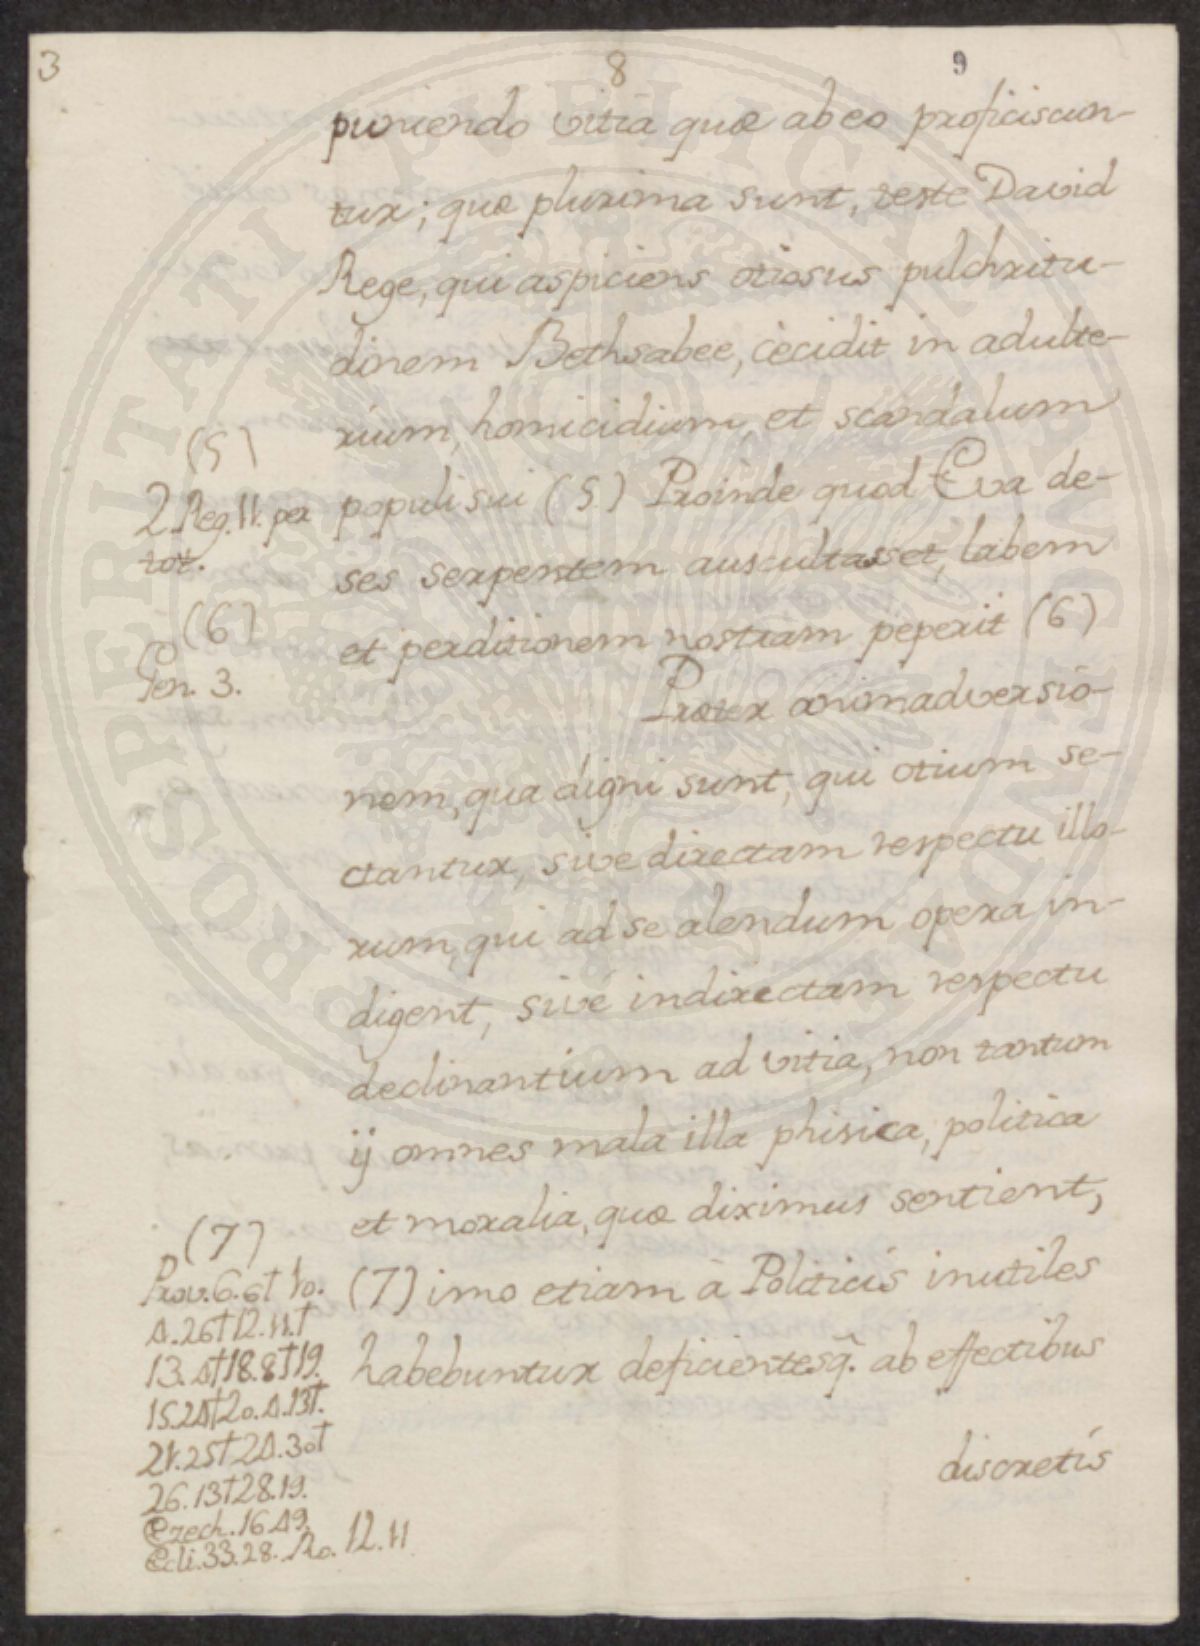 3
8
9
puniendo vitia quæ ab eo proficiscun-
tur; quæ plurima sunt, teste David
Rege, qui aspiciens otiosus pulchritu-
dinem Bethsabee, cecidit in adulte-
rium, homicidium, et scandalum
populi sui (5) Proinde quod Eva de-
ses serpentem auscultasset, labem
et perditionem nostram peperit (6)
Præter animadversio-
nem, qua digni sunt, qui otium se-
ctantur, sive directam respectu illo-
rum, qui ad se alendum opera in-
digent, sive indirectam respectu
declinantium ad vitia, non tantum
ij omnes mala illa phisica, politica
et moralia, quæ diximus sentient,
(7) imo etiam à Politicis inutiles
habebuntur deficientesq̃. ab effectibus
discretis
(5)
2. Reg. 11. per
tot.
(6)
Gen. 3.
(7)
Prov. 6. 6† 10.
4. 26† 12. 11.†
13. 4† 18. 8† 19.
15. 24† 20. 4. 13†.
21. 25† 24. 30†
26. 13† 28. 19.
Ezech. 16 49.
Ecli. 33. 28. Ro. 12. 11
PROSPERITATI PVBLICAE AVGENDAE